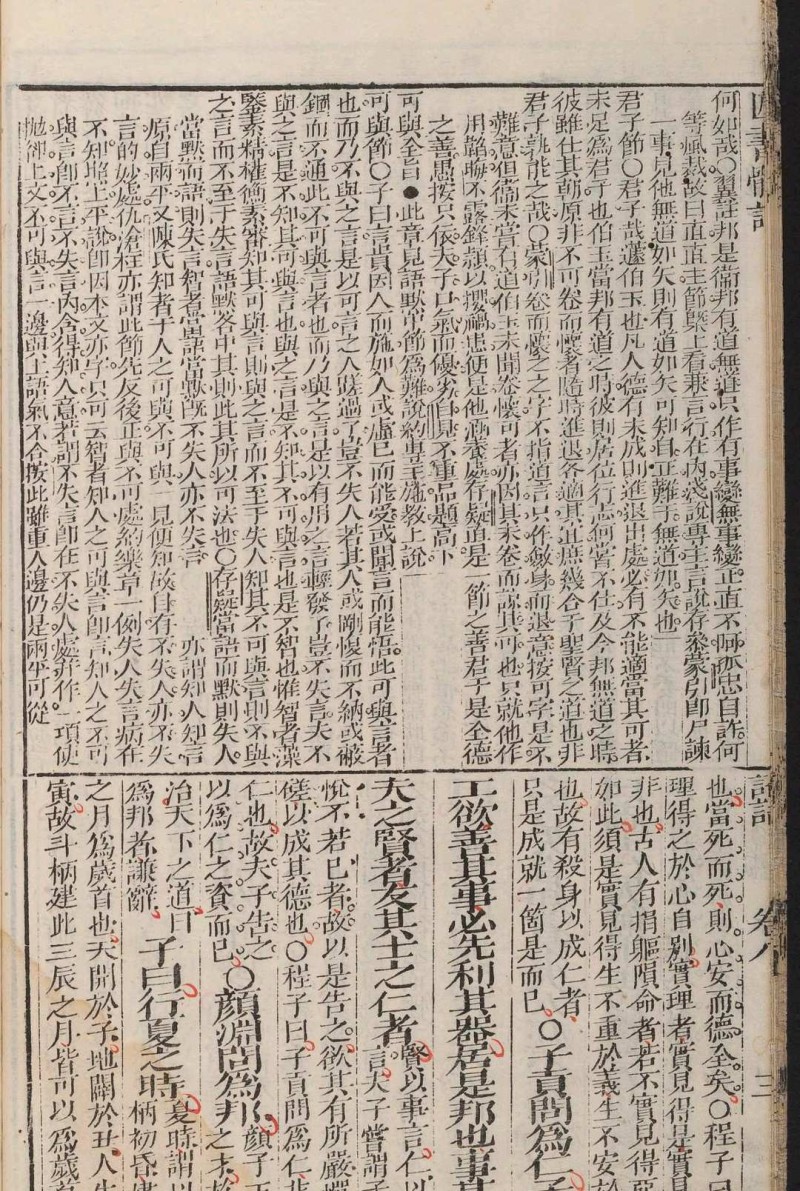 四書備旨
何如哉○翼註邦是衛邦有道無道只作有事變無事變正直不阿孤忠自許何
等風裁故曰直直主節槩上看兼言行在內淺說專主言說存參蒙引即尸諫
一事見他無道如矢則有道如矢可知自正難于無道如矢也
君子節○君子哉蘧伯玉也凡人德有未成則進退出處必有不能適當其可者
未足為君子也伯玉當邦有道之時彼則居位行志何嘗不仕及今邦無道之時
彼雖仕其朝原非不可卷而懷者隨時進退各適其宜庶幾合于聖賢之道也非
君子孰能之哉○蒙引卷而懷之之字不指道言只作斂身而退意按可字是不
難意但衛未嘗召道伯玉未開卷懷可者亦因其未卷而諒其可也只就他作
用韜晦不露鋒穎以攖禍患便是他涵養處存疑直是一節之善君子是全德
之善愚按只依夫子口氣而優劣自見不重品題高下
可與全旨●此章見語默中節為難說約專主施教上說
可與節○子曰言貴因人而施如人或虛已而能受或聞言而能悟此可與言者
也而乃不與之言是以可言之人蹉過了豈不失人若其人或剛愎而不納或被
錮而不通此不可與言者也而乃與之言是以有用之言輕發了豈不失言夫不
與之言是不知其可與言也與之言是不知其不可與言也是不智也惟智者藻
鑒素精權衡素審知其可與言則與之言而不至于失人知其不可與言則不與
之言而不至于失言語默各中其則此其所以可法也○存疑當語而默則失人
當默而語則失言智者當語當默既不失人亦不失言 亦謂知人知言
原自兩平又陳氏知者于人之可與不可與一見便知故自有不失人亦不失
言的妙處仇滄柱亦謂此節先友後正與不可處約樂章一例失人失言病在
不知搃上平說即因本文亦字只可云智者知人之可與言即言知人之不可
與言即不言不失言內含得知人意若謂不失言即在不失人處并作一項使
拋卻上文不可與言一邊與上語氣不合按此雖重人邊仍是兩平可從
論語 卷八 三
也當死而死則心安而德全矣○程子曰
理得之於心自別實理者實見得是實見
非也古人有捐軀隕命者若不實見得惡
如此須是實見得生不重於義生不安於
也故有殺身以成仁者
只是成就一箇是而已○子貢問為仁子
工欲善其事必先利其器居是邦也事其
夫之賢者友其士之仁者賢以事言仁以
言夫子嘗謂子
悅不若已者故以是告之欲其有所嚴憚
磋以成其德也○程子曰子貢問為仁非
仁也故夫子告之
以為仁之資而已○顏淵問為邦顏子王
之才故
治天下之道曰
為邦者謙辭 子曰行夏之時夏時謂以
柄初昏建
之月為歲首也天開於子地闢於丑人生
寅故斗柄建此三辰之月皆可以為歲首